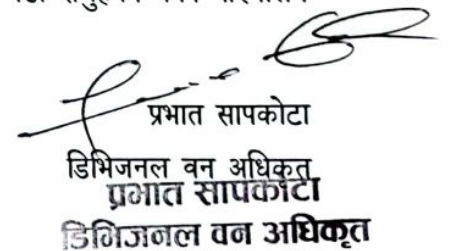 प्रभात सापकोटा
डिभिजनल वन अधिकृत
प्रभात सापकोटा
डिभिजनल वन अधिकृत